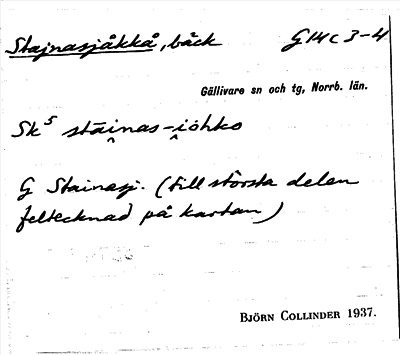 Stajnasjåkkå, bäck G14c 3-4
Gällivare sn och tg, Norrb. län.
Sk⁵ stāi̭nas-i̭ȯhko
G Stainasj. (till största delen
feltecknad på kartan)
BJÖRN COLLINDER 1937.